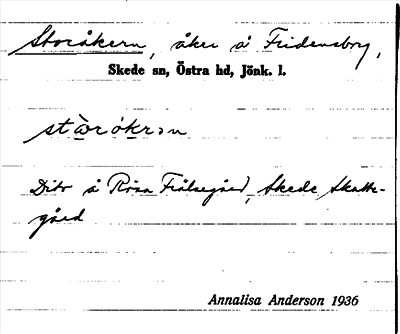 Storåkern, åker å Fridensborg,
Skede sn, Östra hd, Jönk. l.
Dito å Rosa Frälsegård, Skede Skatte-
gård
Annalisa Anderson 1936